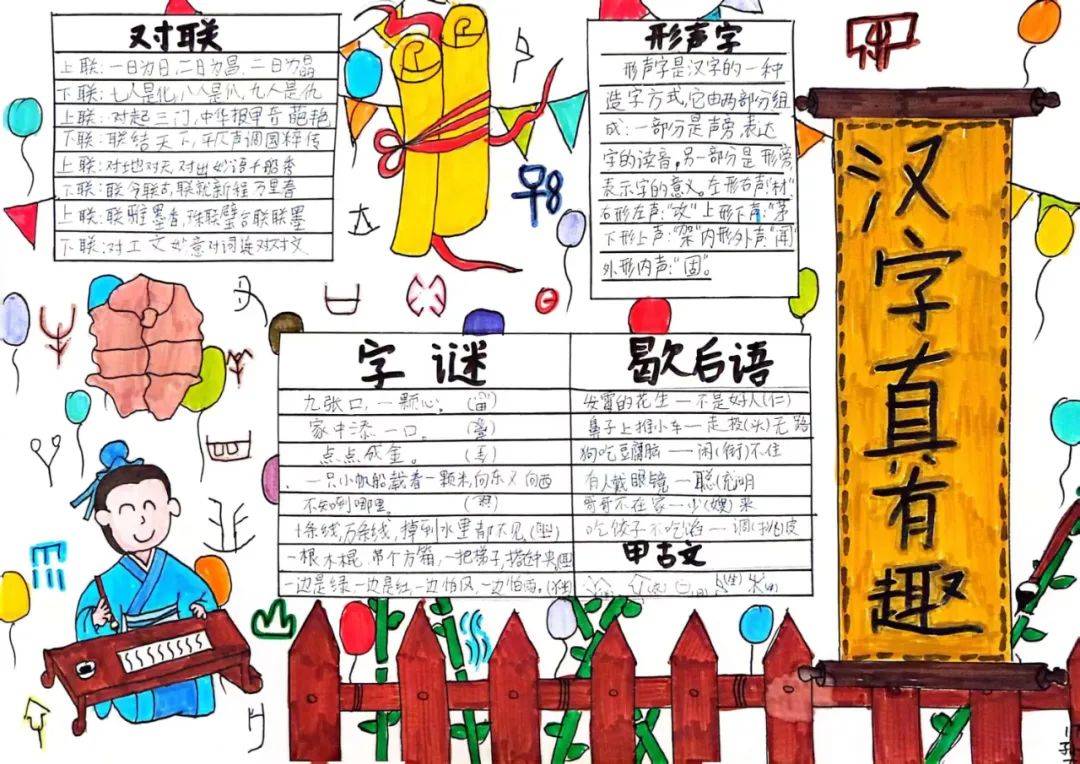 对联
上联:一日为日,二日为昌,三日为晶
下联:七人是化,八人是仈,九人是仇
上联:对起三门,中华报甲奇葩艳
下联:联结天下,平仄声调国粹传
上联:对地对天,对出妙语千般秀
下联:联今联古,联就新程万里春
上联:联雅墨香,珠联璧合联联墨
下联:对工文妙意对词连对对文
形声字
形声字是汉字的一种
造字方式,它由两部分组
成:一部分是声旁,表达
字的读音,另一部分是形旁
表示字的意义。左形右声:"材"
右形左声:"攻"上形下声:"茅"
下形上声:"架"内形外声:"闻"
外形内声:"固"。
汉字真有趣
字谜
九张口,一颗心。
家中添一口。
点点成金。
一只小帆船,载着一颗米,向东又向西
不知到哪里。
十条线,万条线,掉到水里都不见
一根木棍,吊个方箱,一把梯子,搭在中央
一边是绿,一边是红,一边怕风,一边怕雨。
歇后语
发霉的花生一不是好人(仁)
鼻子上推小车一走投(头)无路
狗吃豆腐脑一闲(衔)不住
有人戴眼镜一聪(充)明
哥哥不在家一少(嫂)来
吃饺子不吃馅一调挑皮
甲古文